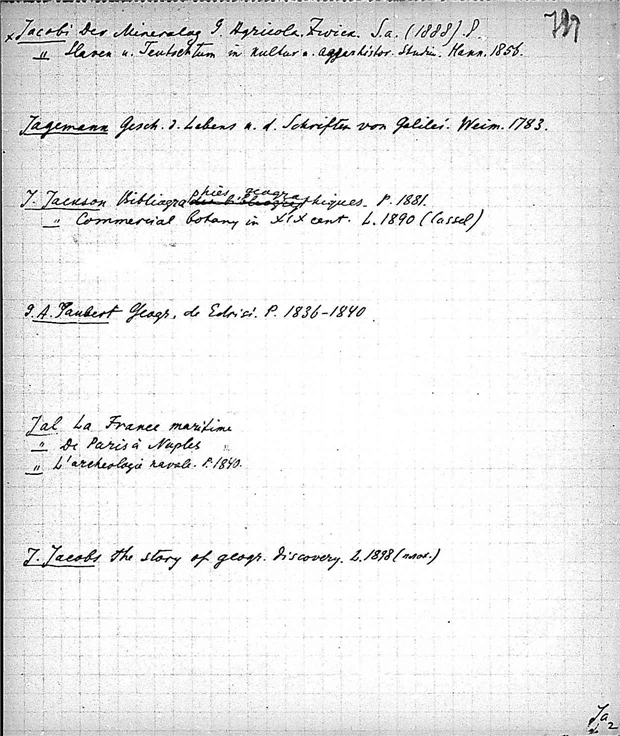 × Jacobi Der Mineralog G. Agricola. Zwick. S.a. (1888) 8.
" Slaven u. Teutschtum in kultur u. agrarhistor. Studien. Hann. 1856.
Jagemann Gesch. d. Lebens u. d. Schriften von Galilei. Weim. 1783.
J. Jackson Bibliographies géographiques. P. 1881.
" Commercial botany in XIX cent. L. 1890 (Cassel)
P. A. Jaubert Géogr. de Edrisi. P. 1836-1840
Jal La France maritime
" De Paris à Naples
" L'archeologie navale. P. 1840.
J. Jacobs The story of geogr. discovery. L. 1898
Ja
2